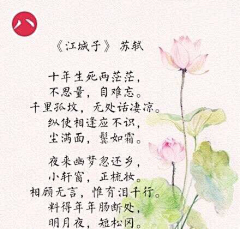 八
《江城子》 苏轼
十年生死两茫茫，
不思量，自难忘。
千里孤坟，无处话凄凉。
纵使相逢应不识，
尘满面，鬓如霜。
夜来幽梦忽还乡，
小轩窗，正梳妆。
相顾无言，惟有泪千行。
料得年年肠断处，
明月夜，短松冈。